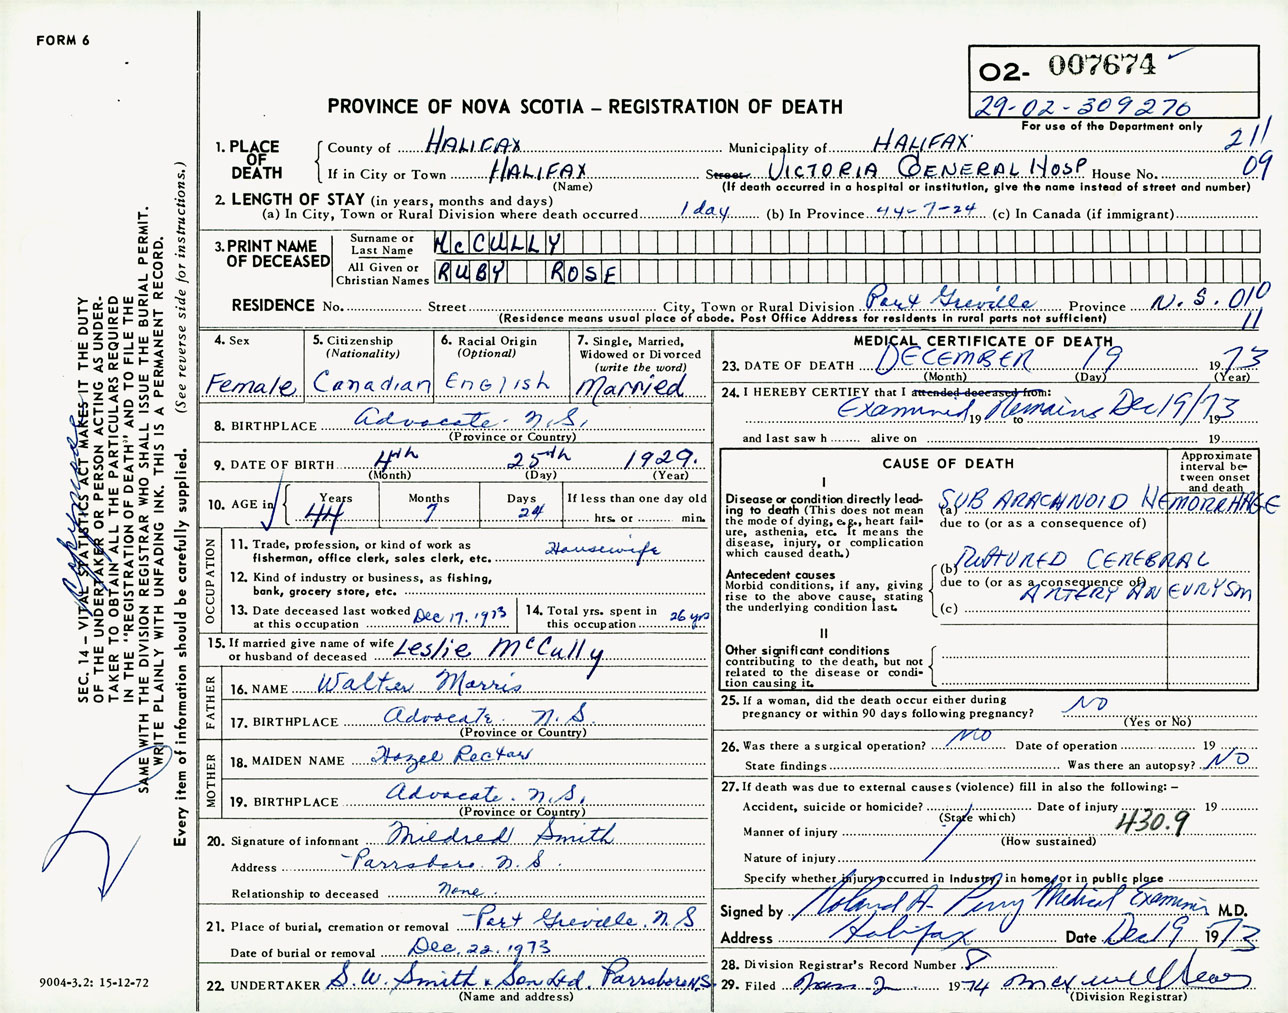 FORM 6
O2- 007674
29-02-309276
For use of the Department only
PROVINCE OF NOVA SCOTIA – REGISTRATION OF DEATH
1. PLACE OF DEATH
County of HALIFAX Municipality of HALIFAX 211
If in City or Town HALIFAX Street VICTORIA GENERAL HOSP House No. 09
(Name) (If death occurred in a hospital or institution, give the name instead of street and number)
2. LENGTH OF STAY (in years, months and days)
(a) In City, Town or Rural Division where death occurred 1 day (b) In Province 44-7-24 (c) In Canada (if immigrant)
3. PRINT NAME OF DECEASED
Surname or Last Name McCULLY
All Given or Christian Names RUBY ROSE
RESIDENCE No. Street City, Town or Rural Division Port Greville Province N.S. 010
(Residence means usual place of abode. Post Office Address for residents in rural parts not sufficient) 11
4. Sex
Female
5. Citizenship
(Nationality)
Canadian
6. Racial Origin
(Optional)
English
7. Single, Married,
Widowed or Divorced
(write the word)
Married
8. BIRTHPLACE Advocate N.S.
(Province or Country)
9. DATE OF BIRTH 4th 25th 1929.
(Month) (Day) (Year)
10. AGE in
Years Months Days If less than one day old
44 7 24 hrs. or min.
OCCUPATION
11. Trade, profession, or kind of work as
fisherman, office clerk, sales clerk, etc. Housewife
12. Kind of industry or business, as fishing,
bank, grocery store, etc.
13. Date deceased last worked
at this occupation Dec 17. 1973
14. Total yrs. spent in
this occupation 26 yrs
15. If married give name of wife
or husband of deceased Leslie McCully
FATHER
16. NAME Walter Morris
17. BIRTHPLACE Advocate N.S.
(Province or Country)
MOTHER
18. MAIDEN NAME Hazel Rector
19. BIRTHPLACE Advocate. N.S.
(Province or Country)
20. Signature of informant Mildred Smith
Address Parrsboro. N.S.
Relationship to deceased None.
21. Place of burial, cremation or removal Port Greville. N S
Date of burial or removal Dec. 22. 1973
22. UNDERTAKER S. W. Smith & Son Ltd. Parrsboro N.S.
(Name and address)
MEDICAL CERTIFICATE OF DEATH
23. DATE OF DEATH DECEMBER 19 1973
(Month) (Day) (Year)
24. I HEREBY CERTIFY that I attended deceased from:
Examined 19 Remains to Dec 19/73 19
and last saw h alive on 19
CAUSE OF DEATH
Approximate
interval be-
tween onset
and death
I
Disease or condition directly lead-
ing to death (This does not mean
the mode of dying, e.g., heart fail-
ure, asthenia, etc. It means the
disease, injury, or complication
which caused death.)
(a) SUB ARACHNOID HEMORRHAGE
due to (or as a consequence of)
Antecedent causes
Morbid conditions, if any, giving
rise to the above cause, stating
the underlying condition last.
(b) RUTURED CEREBRAL
due to (or as a consequence of)
ARTERY ANEURYSM
(c)
II
Other significant conditions
contributing to the death, but not
related to the disease or condi-
tion causing it.
25. If a woman, did the death occur either during
pregnancy or within 90 days following pregnancy? NO
(Yes or No)
26. Was there a surgical operation? NO Date of operation 19
State findings Was there an autopsy? NO
27. If death was due to external causes (violence) fill in also the following: –
Accident, suicide or homicide? Date of injury 19
(State which) 430.9
Manner of injury
(How sustained)
Nature of injury
Specify whether injury occurred in Industry, in home, or in public place
Signed by Roland A. Perry Medical Examiner M.D.
Address Halifax Date Dec 19 1973
28. Division Registrar's Record Number 8
29. Filed Jan 2 1974
(Division Registrar)
SEC. 14 – VITAL STATISTICS ACT MAKES IT THE DUTY
OF THE UNDERTAKER OR PERSON ACTING AS UNDER-
TAKER TO OBTAIN ALL THE PARTICULARS REQUIRED
IN THE "REGISTRATION OF DEATH" AND TO FILE THE
SAME WITH THE DIVISION REGISTRAR WHO SHALL ISSUE THE BURIAL PERMIT.
WRITE PLAINLY WITH UNFADING INK. THIS IS A PERMANENT RECORD.
Every item of information should be carefully supplied. (See reverse side for instructions.)
9004-3.2: 15-12-72